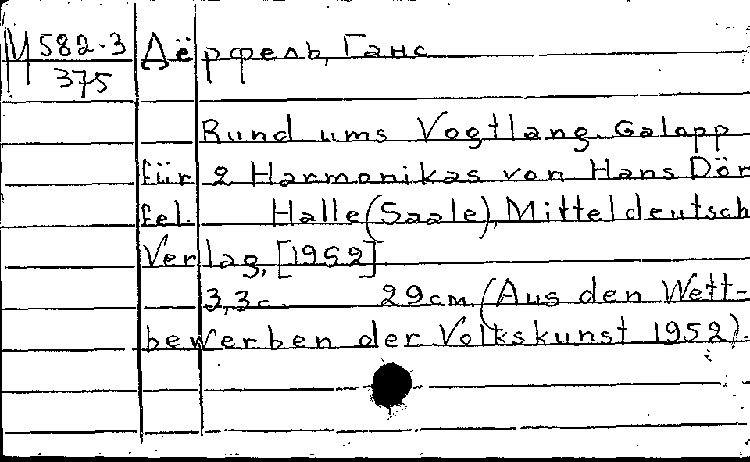 М 582-3 Дёрффель, Ганс
375
Rund ums Vogtlang. Galopp
für 2 Harmonikas von Hans Dör
fel. Halle (Saale), Mitteldeutsch
Verlag, [1952]
3,3 с. 29 cm. (Aus den Wett-
bewerben der Volkskunst 1952).